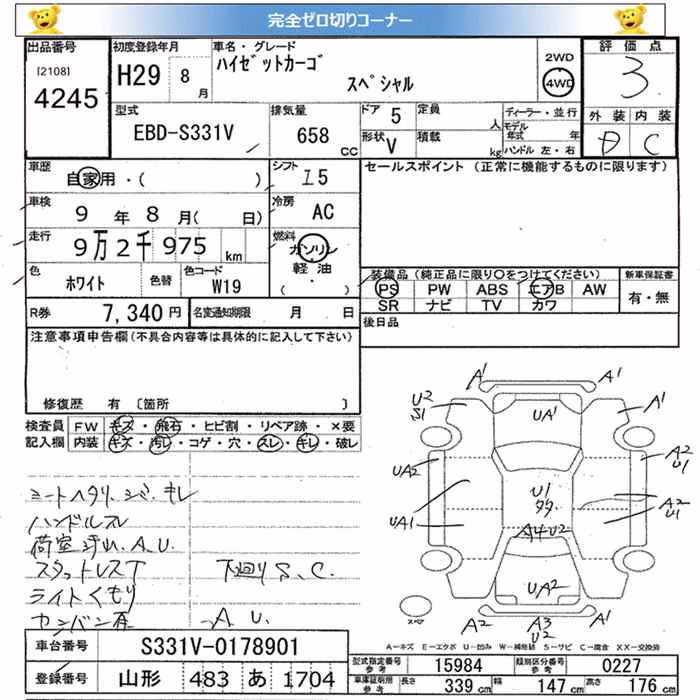 完全ゼロ切りコーナー
出品番号 初度登録年月 車名・グレード 2WD 評価点
[2108] H29 8月 ハイゼットカーゴ スペシャル 4WD 3
4245
型式 排気量 ドア 5 定員 人 ディーラー・並行 外装 内装
EBD-S331V 658 CC 形状 V 積載 kg モデル年式 年 D C
ハンドル 左・右
車歴 自家用・( ) シフト I5 セールスポイント (正常に機能するものに限ります)
車検 9年 8月( 日) 冷房 AC
走行 9万2千975 km 燃料 ガソリン
軽油・( )
色 ホワイト 色替 色コード W19 装備品(純正品に限り○をつけてください) 新車保証書
PS PW ABS エアB AW 有・無
SR ナビ TV カワ
R券 7,340円 名変通知期限 月 日 後日品
注意事項申告欄(不具合内容等は具体的に記入して下さい)
修復歴 有 〔箇所 〕
検査員 FW キズ・飛石・ヒビ割・リペア跡・×要
記入欄 内装 キズ・汚レ・コゲ・穴・スレ・キレ・破レ
A1 A1
U2 S1 UA1 A1
UA2 A2 U1
U1
UA1 A2 U1
A4U2
UA2
A2 A3 U2 A1
シートヘタリ、シミ、キレ
ハンドルスレ
荷室汚れ、A、U
スタットレスT 下廻りS、C、
ライトくもり
カンバン有 A U
A-キズ E-エクボ U-凹み W-補修跡 S-サビ C-腐食 XX-交換跡
車台番号 S331V-0178901
登録番号 山形 483 あ 1704
型式指定番号 参考 15984 類別区分番号 参考 0227
車庫証明用 参考 長さ 339cm 幅 147cm 高さ 176cm